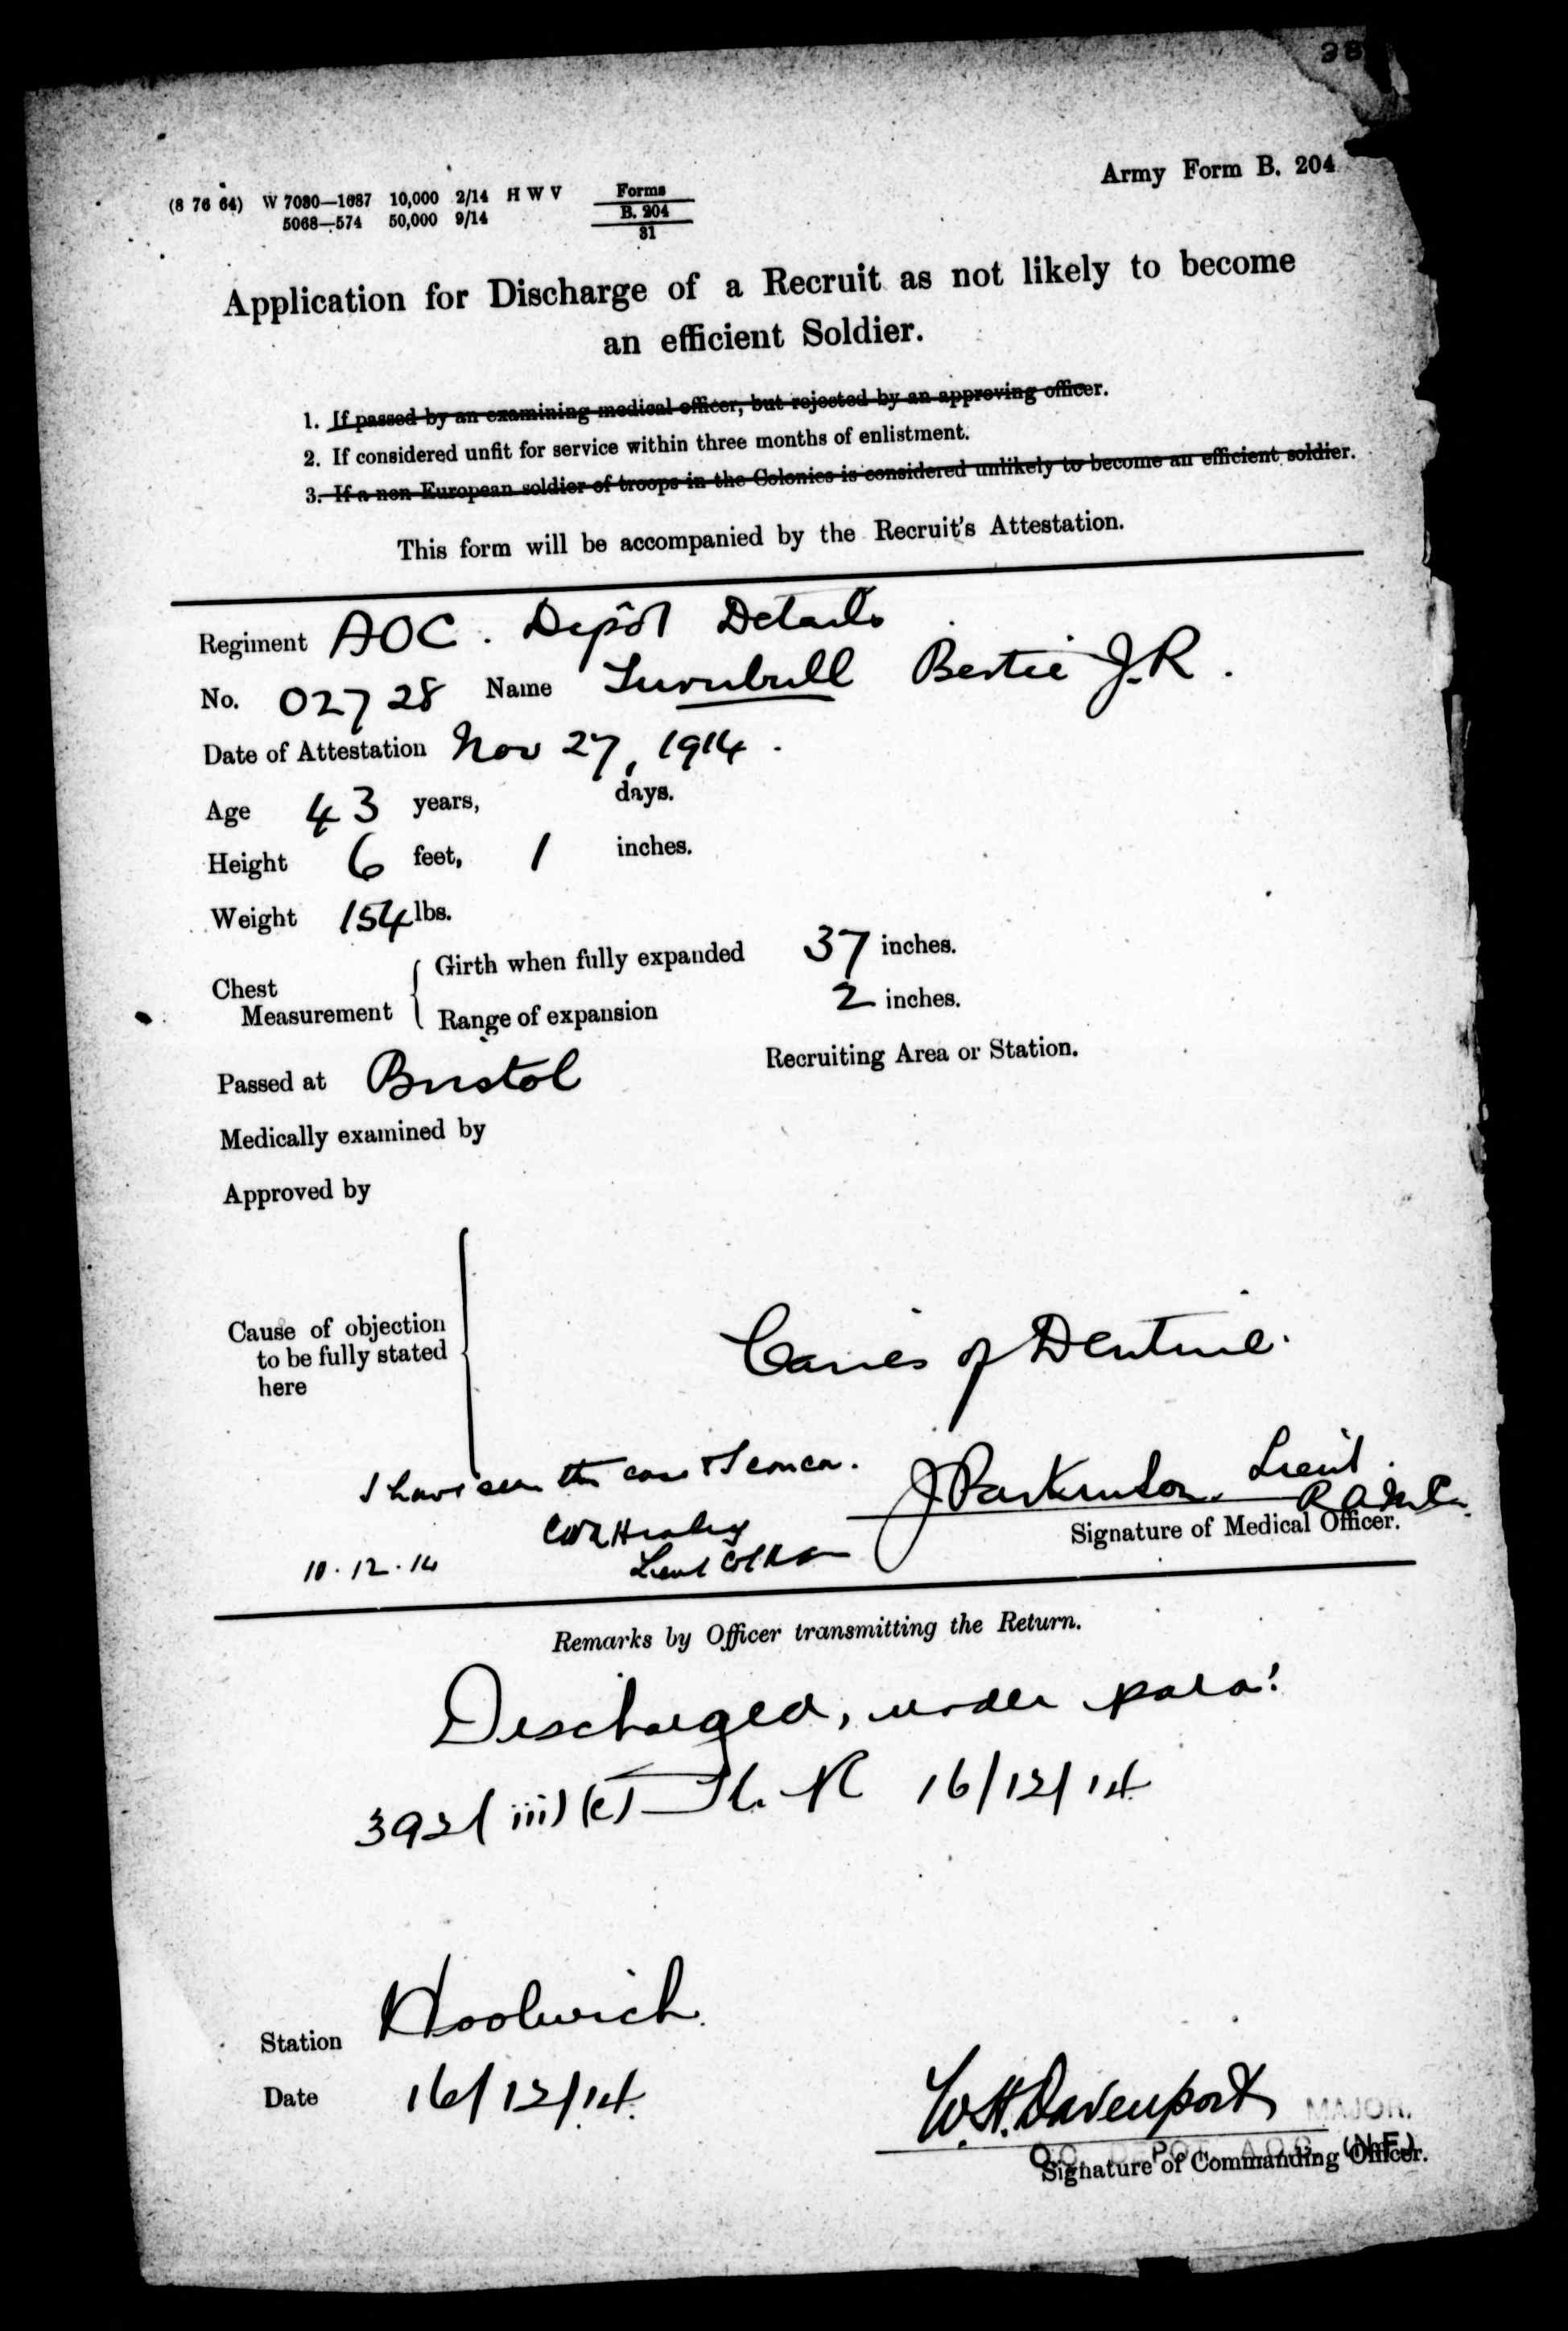 38
Army Form B. 204
(8 76 64) W 7080—1687 10,000 2/14 H W V Forms
5068—574 50,000 9/14 B. 204
31
Application for Discharge of a Recruit as not likely to become
an efficient Soldier.
1. If passed by an examining medical officer, but rejected by an approving officer.
2. If considered unfit for service within three months of enlistment.
3. If a non-European soldier of troops in the Colonies is considered unlikely to become an efficient soldier.
This form will be accompanied by the Recruit's Attestation.
Regiment AOC. Depôt Details
No. 02728 Name Turnbull Bertie J.R.
Date of Attestation Nov 27, 1914.
Age 43 years, days.
Height 6 feet, 1 inches.
Weight 154 lbs.
Chest Measurement { Girth when fully expanded 37 inches.
Range of expansion 2 inches.
Passed at Bristol Recruiting Area or Station.
Medically examined by
Approved by
Cause of objection
to be fully stated
here
Caries of Dentine.
I have seen the case & I concur.
J Parkinson. Lieut.
RAMC.
Signature of Medical Officer.
Lieut Col
10.12.14
Remarks by Officer transmitting the Return.
Discharged, under para:
392 (iii) (c) K. R 16/12/14
Station Woolwich.
Date 16/12/14.
W.H. Davenport MAJOR.
O.C. DEPOT A.O.C. (N.F.)
Signature of Commanding Officer.